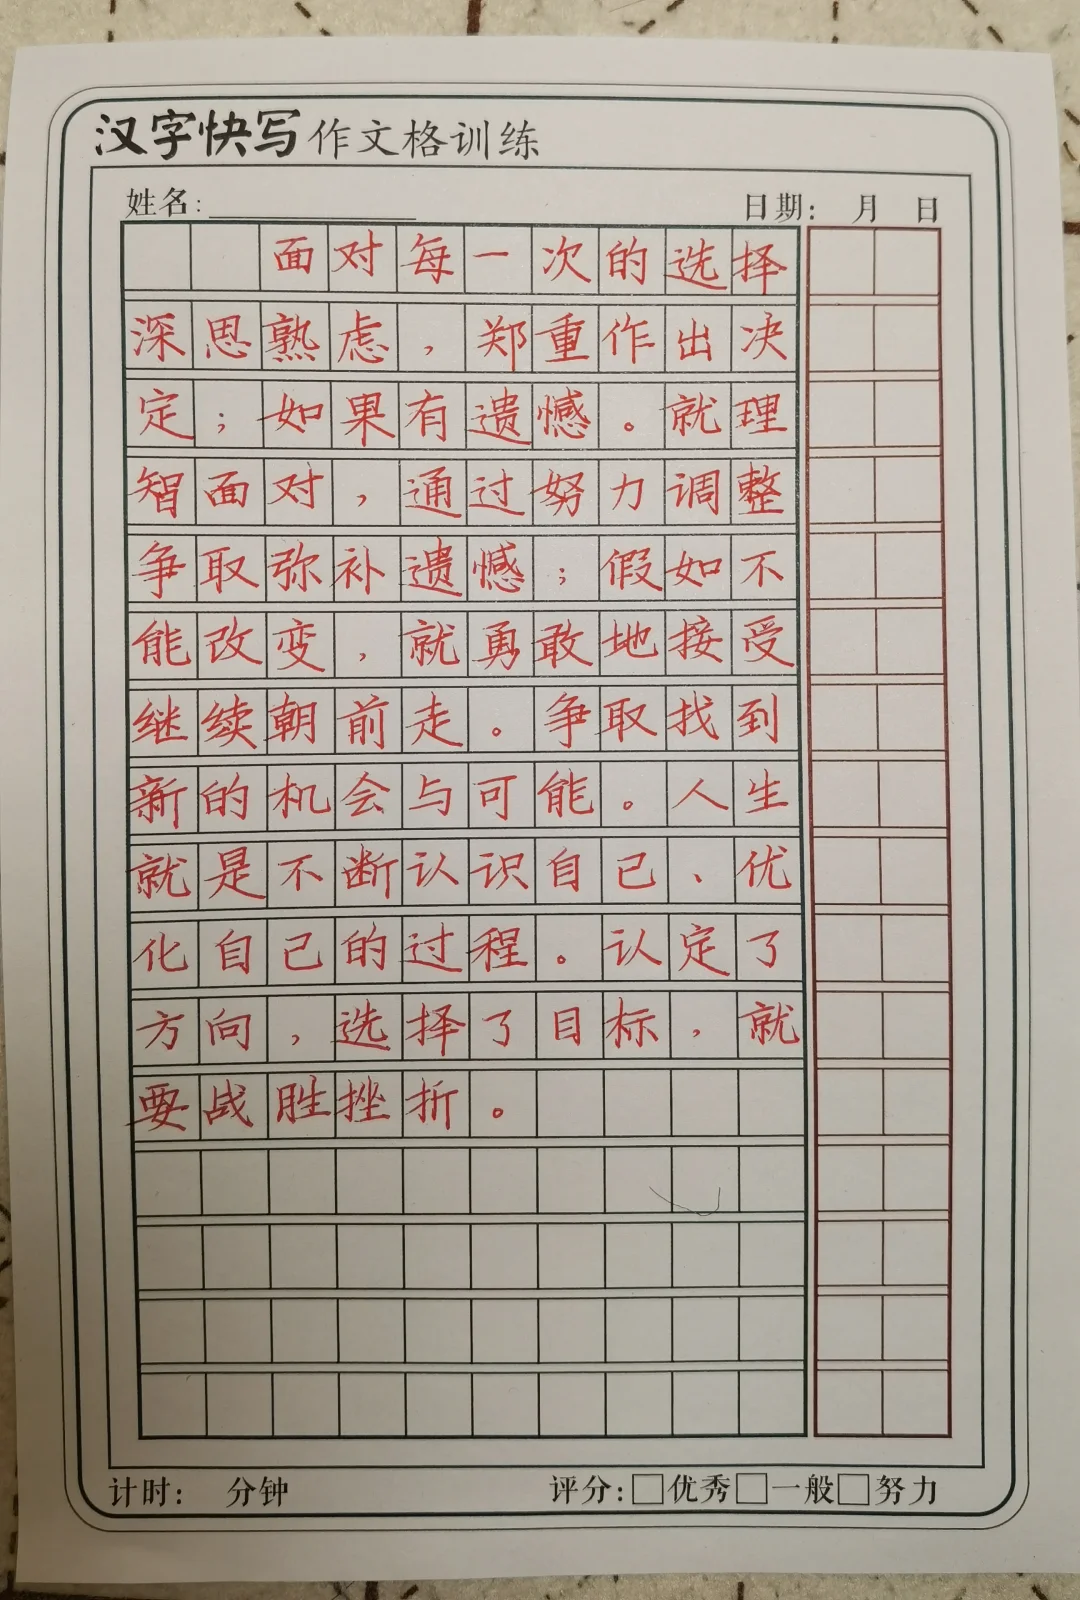 汉字快写作文格训练
姓名: 日期: 月 日
面对每一次的选择
深思熟虑，郑重作出决
定；如果有遗憾。就理
智面对，通过努力调整
争取弥补遗憾；假如不
能改变，就勇敢地接受
继续朝前走。争取找到
新的机会与可能。人生
就是不断认识自己、优
化自己的过程。认定了
方向，选择了目标，就
要战胜挫折。
计时: 分钟 评分:□优秀□一般□努力